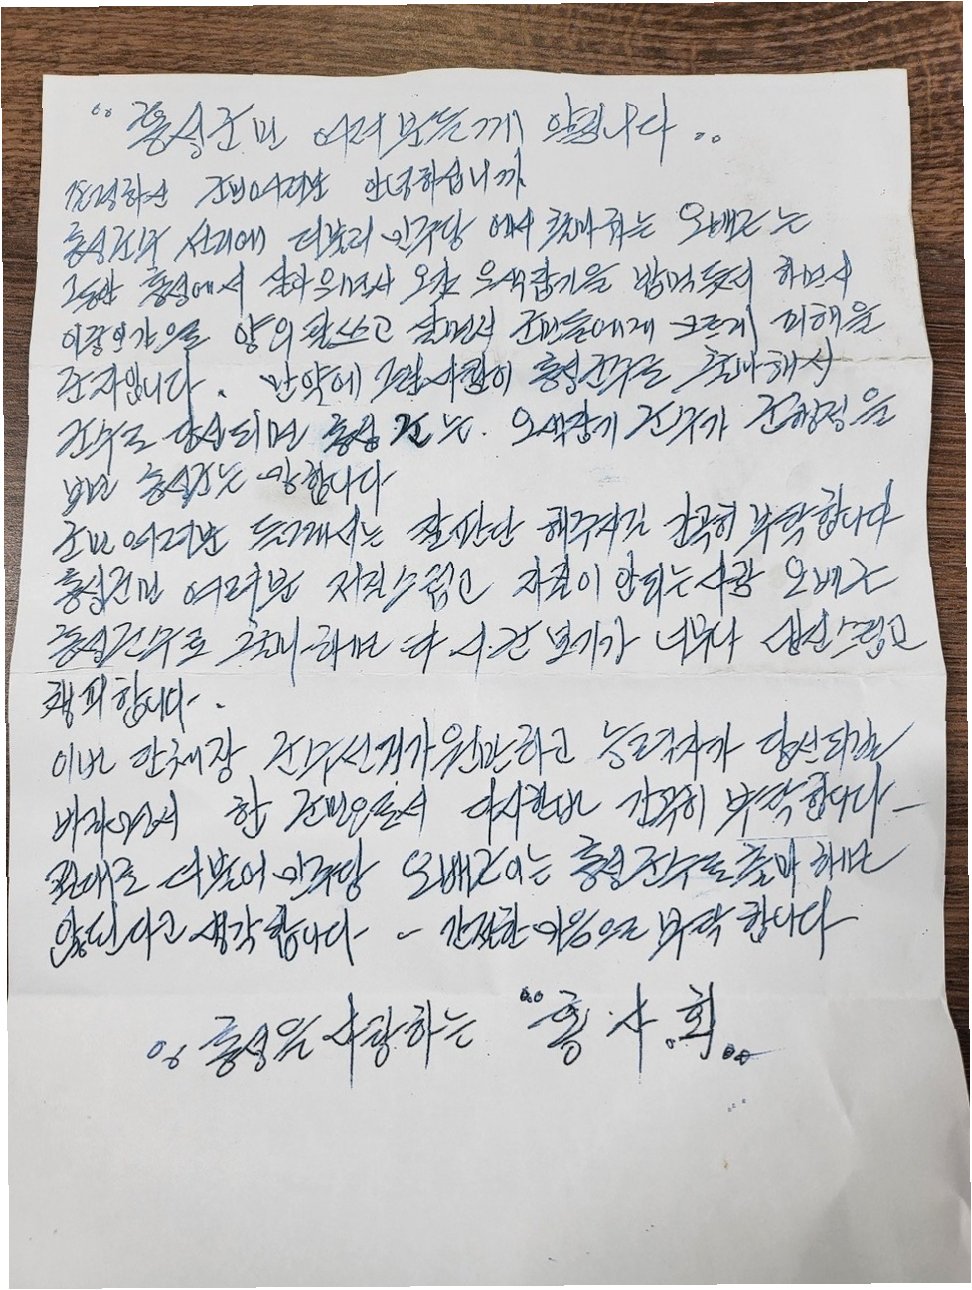 "홍성군민 여러분들께 알립니다"
존경하신 군민여러분 안녕하십니까
홍성군수 선거에 더불어 민주당 에서 출마하는 오배근는
그동안 홍성에서 살아오면서 오갖 오색잡기을 밥먹듯이 하면서
이중인간으로 양의탈쓰고 살면서 군민들에게 크르게 피해을
준자입니다. 만약에 그런사람이 홍성군수로 출마해서
군수로 당선되면 홍성군는. 오색잡기 군수가 군행정을
보면 홍성군는 망합니다
군민여러분 들께서는 잘판단 해주시길 간곡히 부탁합니다
홍성군민 여러분 저질스럽고 자질이 안되는사람 오배근
홍성군수로 출마하면 타 시군 보기가 너무나 남신스럽고
챙피합니다.
이번 단체장 군수선거가 원만하고 능력자가 당선되길
바라면서 한 군민으로서 다시한번 간곡히 부탁합니다
절대로 더불어 민주당 오배근이는 홍성군수로 출마하면
않된다고 생각합니다 - 간절한 마음으로 부탁합니다
홍성을 사랑하는 "홍.사.회"